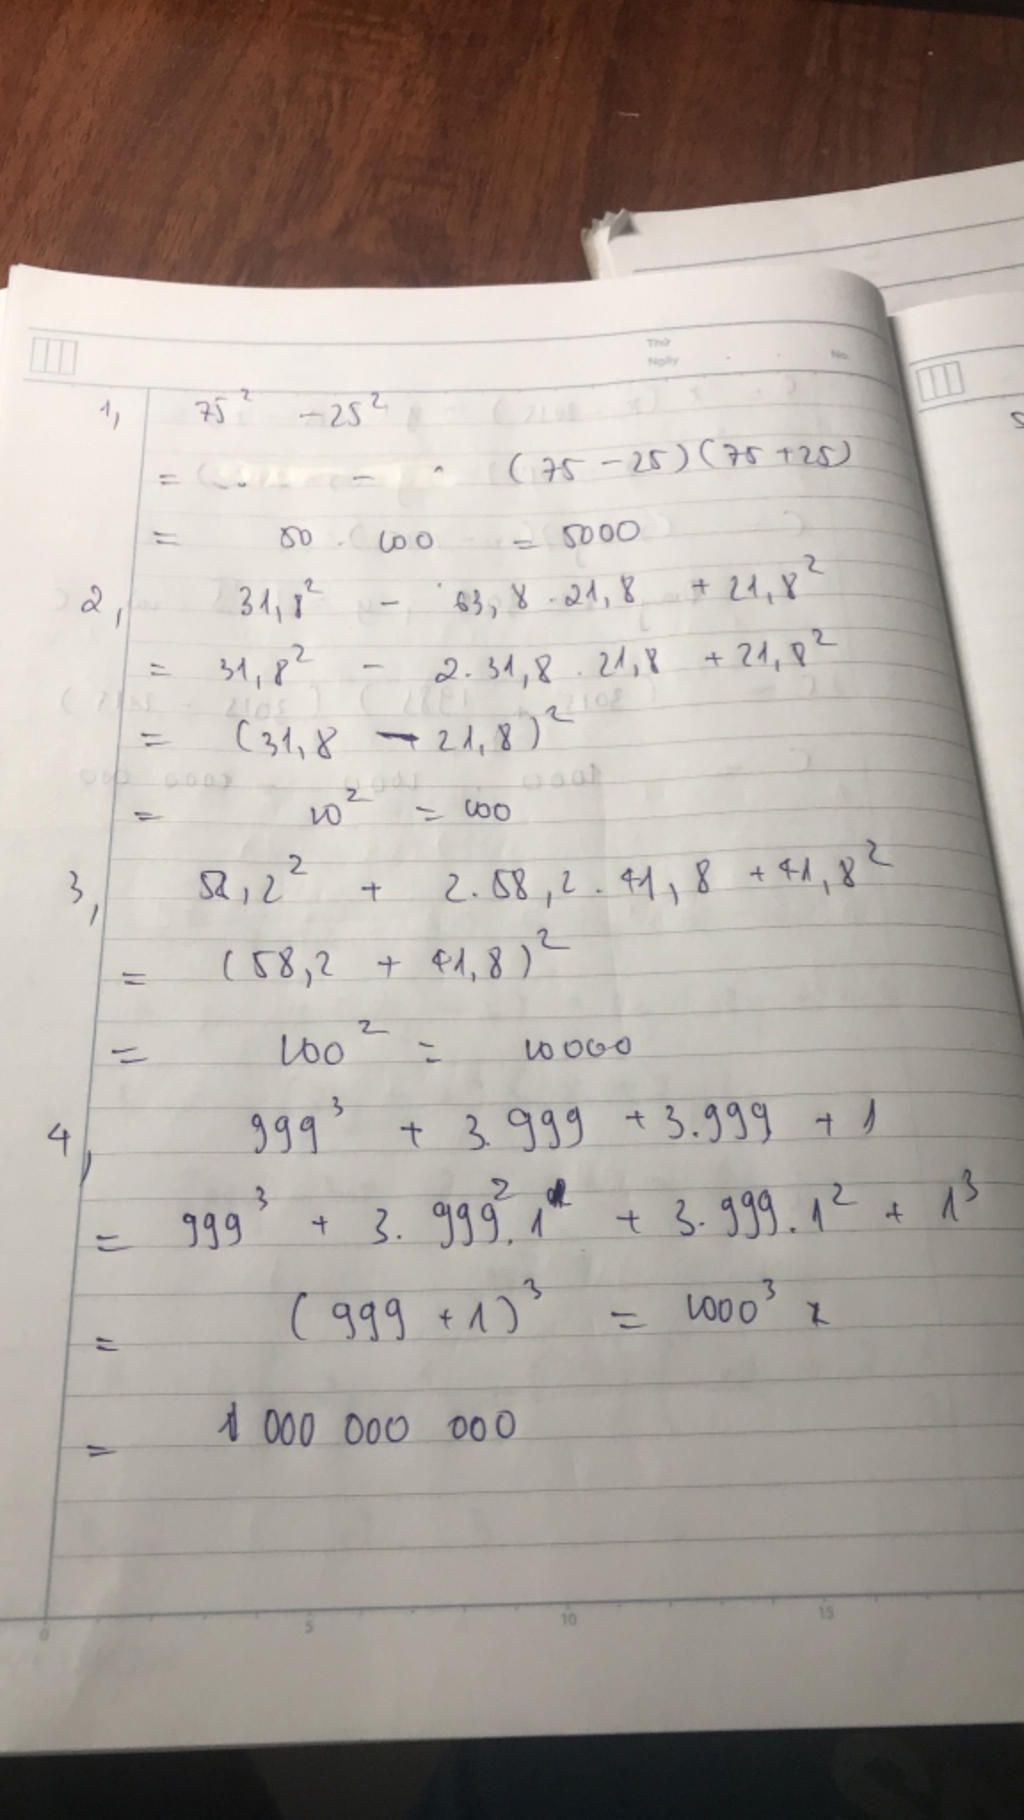 Thứ
Ngày No.
1, 75² - 25²
= (75 - 25)(75 + 25)
= 50 . 100 = 5000
2, 31,8² - 63,8 . 21,8 + 21,8²
= 31,8² - 2. 31,8 . 21,8 + 21,8²
= (31,8 - 21,8)²
= 10² = 100
3, 58,2² + 2. 58,2 . 41,8 + 41,8²
= (58,2 + 41,8)²
= 100² = 10000
4, 999³ + 3. 999 + 3. 999 + 1
= 999³ + 3. 999². 1 + 3. 999. 1² + 1³
= (999 + 1)³ = 1000³
= 1 000 000 000
0 5 10 15